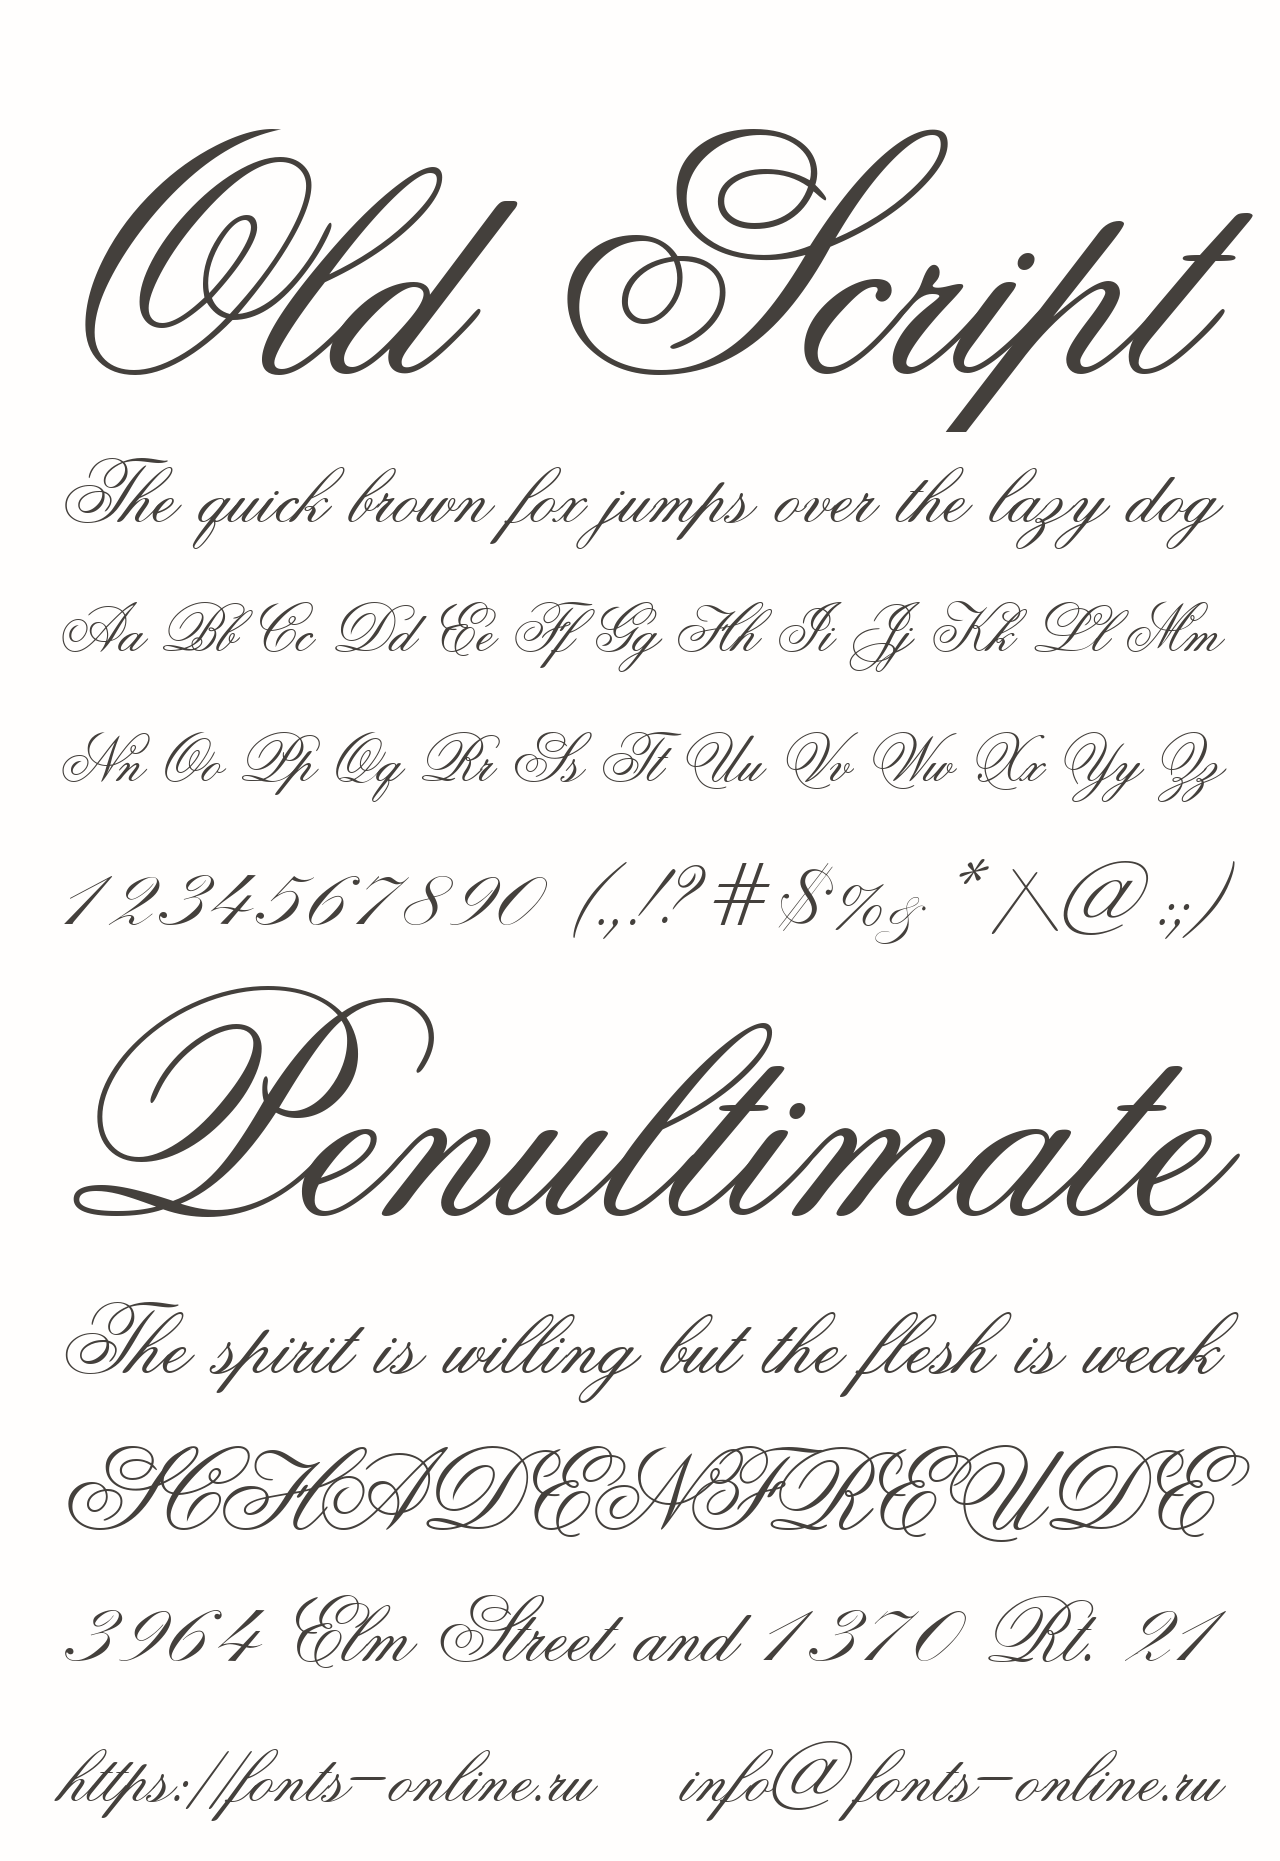 Old Script
The quick brown fox jumps over the lazy dog
Aa Bb Cc Dd Ee Ff Gg Hh Ii Jj Kk Ll Mm
Nn Oo Pp Qq Rr Ss Tt Uu Vv Ww Xx Yy Zz
1234567890 (.,!?#$%& * /\@ :;)
Penultimate
The spirit is willing but the flesh is weak
SCHADENFREUDE
3964 Elm Street and 1370 Rt. 21
https://fonts-online.ru info@fonts-online.ru